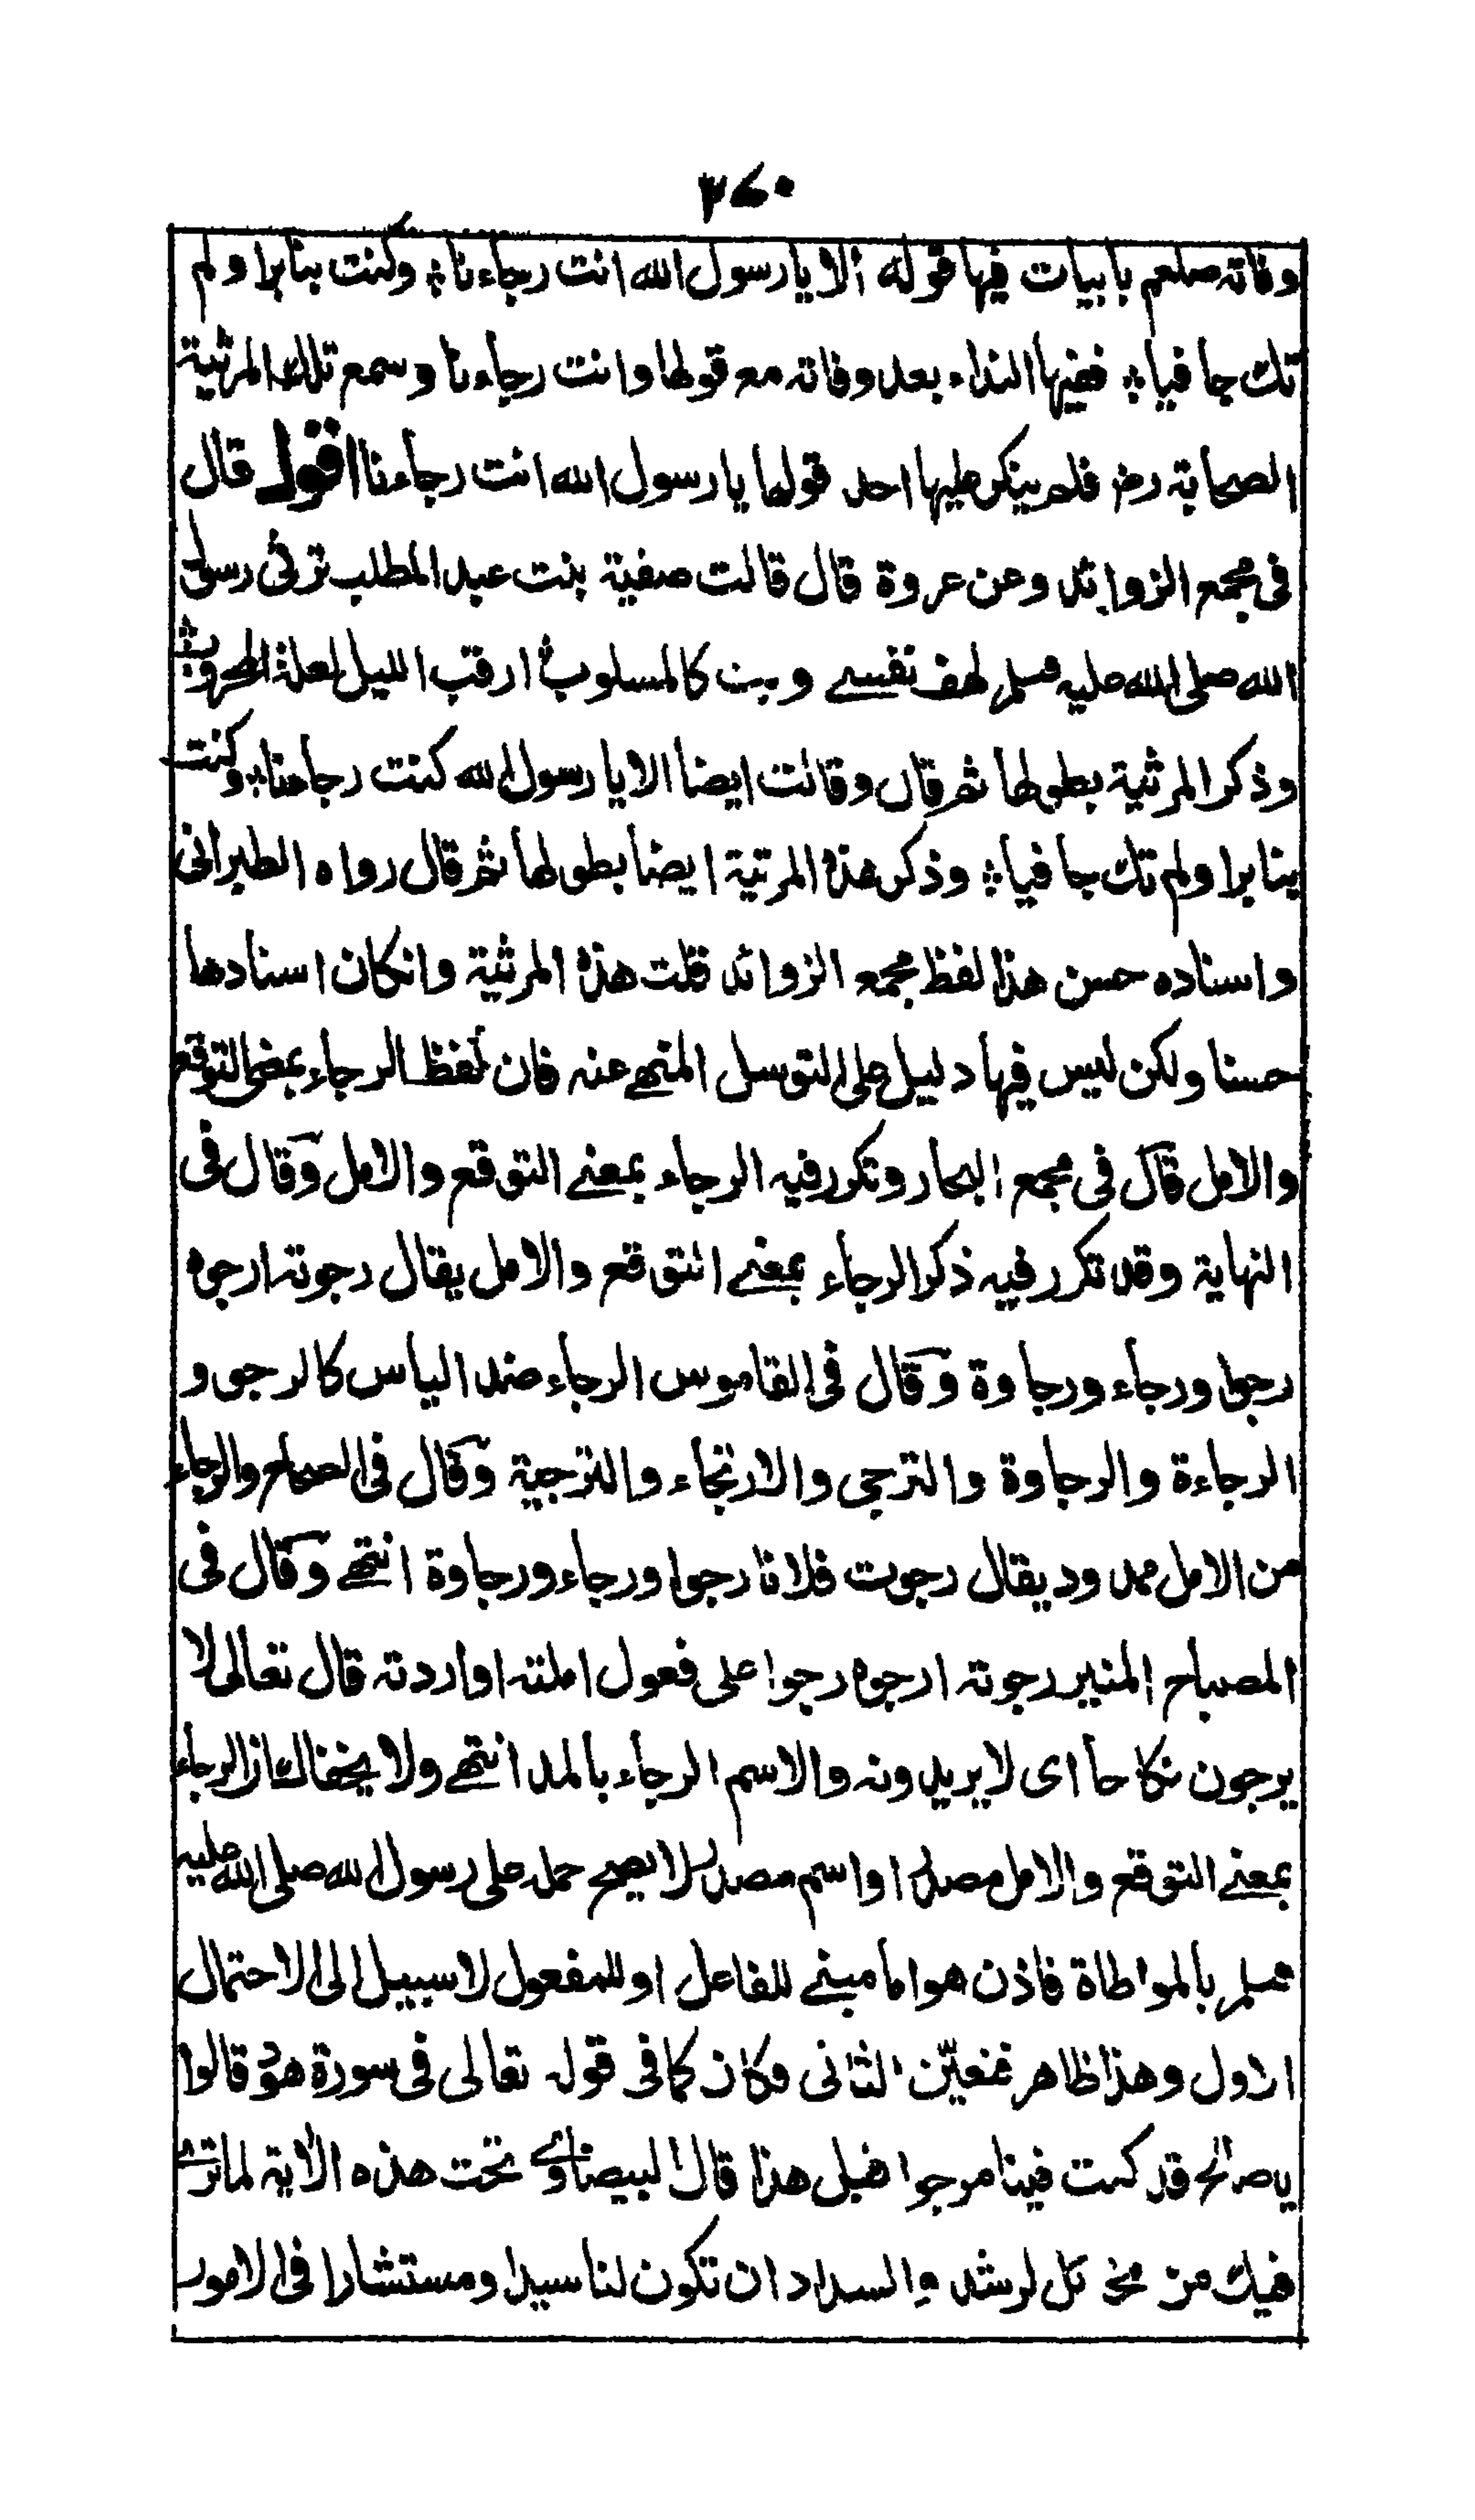 ٢٧٠
وفاته صلعم بابيات فيها قوله الا يا رسول الله انت رجاءنا ؛ وكنت بنا برا ولم
تك جافيا ؛ ففيها النداء بعد وفاته مع قولها وانت رجاءنا وسمع تلك المرثية
الصحابة رض فلم ينكر عليها احد قولها يا رسول الله انت رجاءنا اقول قال
فى مجمع الزوائد وعن عروة قال قالت صفية بنت عبد المطلب ترثى رسول
الله صلى الله عليه وسلم لهف نفسے وبت كالمسلوب ؛ ارقب الليل فعلة المحروب ؛
وذكر المرثية بطولها ثم قال وقالت ايضا الا يا رسول الله كنت رجاءنا ؛ وكنت
بنا برا ولم تك جافيا ؛ وذكر هذه المرثية ايضا بطولها ثم قال رواه الطبرانى
واسناده حسن هذا لفظ مجمع الزوائد قلت هذه المرثية وانكان اسنادها
حسنا ولكن ليس فيها دليل على التوسل المنهے عنه فان لفظ الرجاء بمعنى التوقع
والامل قال فى مجمع البحار وتكرر فيه الرجاء بمعنے التوقع والامل وقال فى
النهاية وقد تكرر فيه ذكر الرجاء بمعنے التوقع والامل يقال رجوته ارجوه
رجوا ورجاء ورجاوة وقال فى القاموس الرجاء ضد الياس كالرجو و
الرجاءة والرجاوة والترجى والارتجاء والترجية وقال فى الصحاح والرجاء
من الامل ممدود يقال رجوت فلانا رجوا ورجاء ورجاوة انتهے وقال فى
المصباح المنير رجوته ارجوه رجوا على فعول املته او اردته قال تعالى لا
يرجون نكاحا اى لا يريدونه والاسم الرجاء بالمد انتهے ولا يخفاك ان الرجاء
بمعنے التوقع والامل مصدر او اسم مصدر لا يصح حمله على رسول الله صلى الله عليه
وسلم بالمواطاة فاذن هو اما مبنے للفاعل او للمفعول لا سبيل الى الاحتمال
الاول وهذا ظاهر فتعين الثانى فكان كما فى قوله تعالى فى سورة هود قالوا
يا صالح قد كنت فينا مرجوا قبل هذا قال البيضاوے تحت هذه الآية لما نرے
فيك من مخائل الرشد والسداد ان تكون لنا سيدا ومستشارا فى الامور